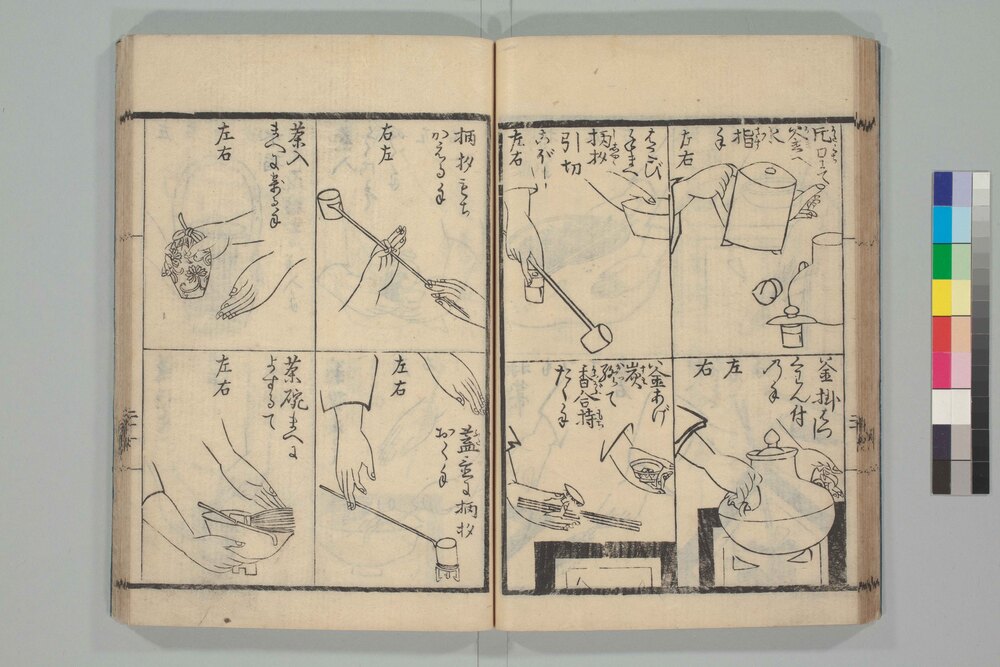 片口にて
釜へ
水
指
手
左右
はこび
手まへ
柄杓
引切
こぼし
左右
釜掛る
くわん付
の手
左
右
釜あげ
炭
終て
香合持
たる手
柄杓もち
かへる手
右左
茶入
まへに置る手
左右
蓋置に柄杓
おく手
左右
茶碗まへに
よする手
左右